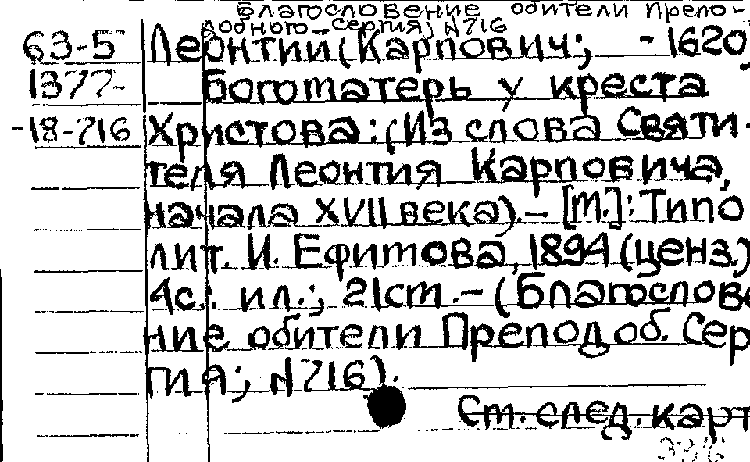 Благословение обители Препо-
добного Сергия; N716
63-5 Леонтий (Карпович; -1620)
1377- Богоматерь у креста
-18-716 Христова: (Из слова Святи-
теля Леонтия Карповича,
начала XVII века). – [М.]: Типо
лит. И. Ефимова, 1894 (ценз.)
4с.: ил.; 21см. – (Благослове
ние обители Преподоб. Сер
гия; N716).
См. след. карт